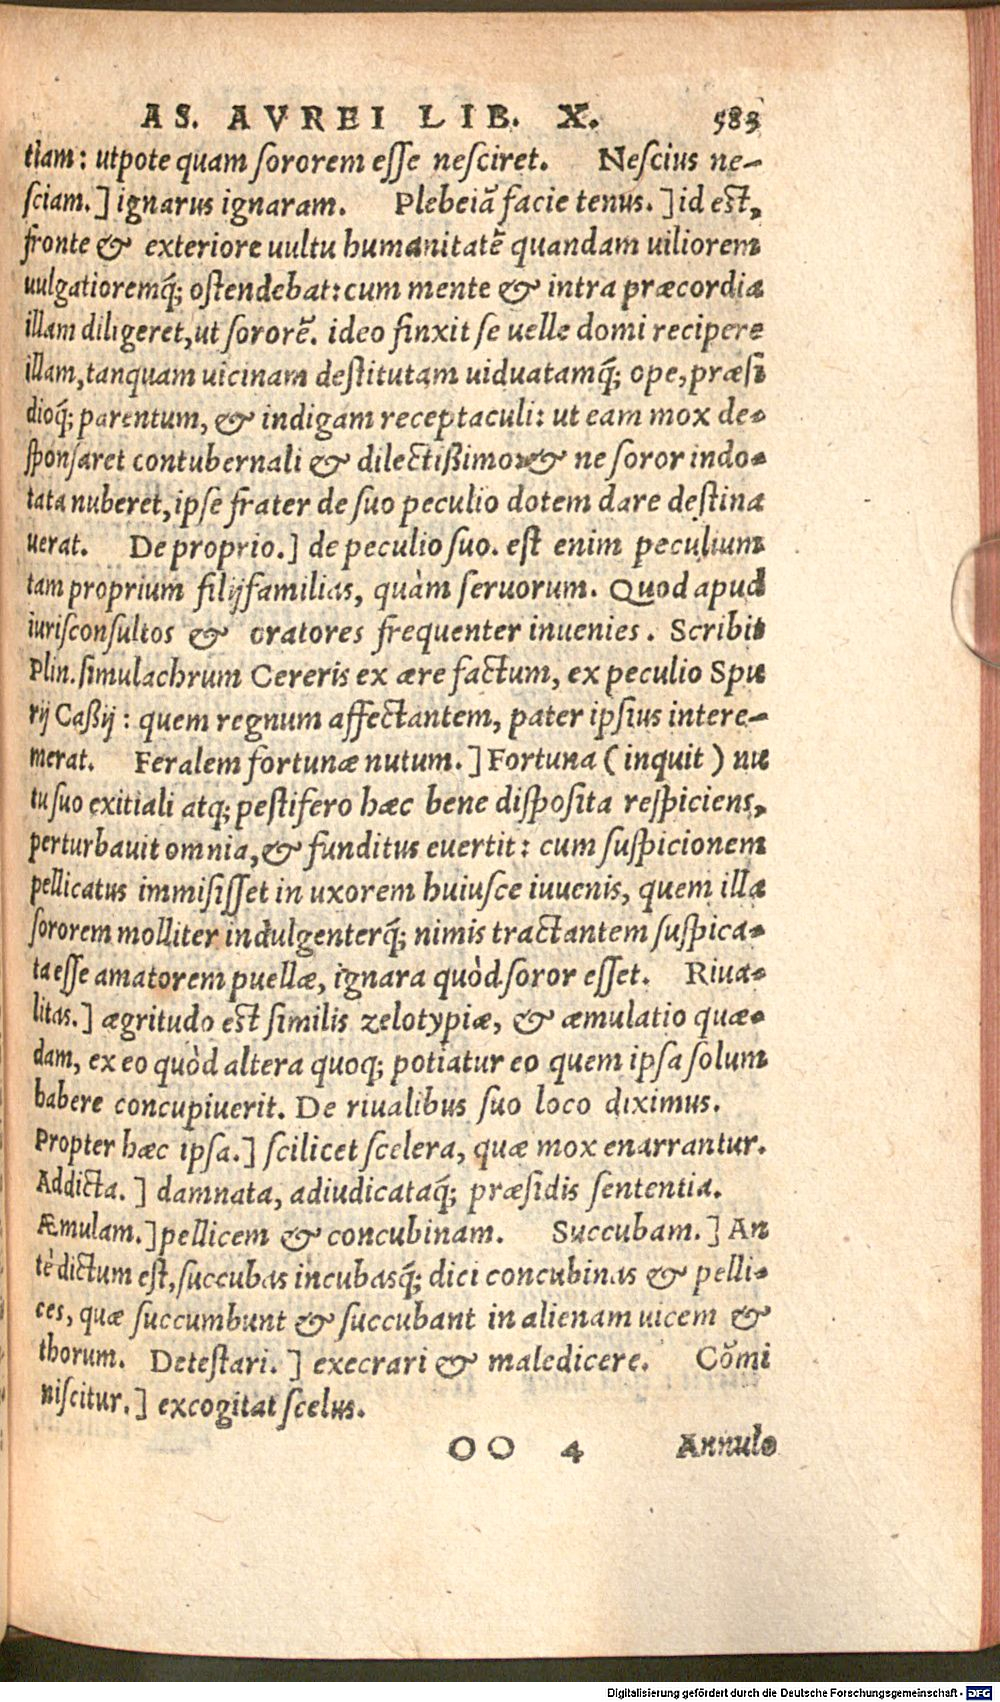 AS. AVREI LIB. X. 583
tiam: utpote quam sororem esse nesciret. Nescius ne-
sciam.] ignarus ignaram. Plebeiā facie tenus.] id est,
fronte & exteriore uultu humanitatē quandam uiliorem
uulgatioremq́; ostendebat: cum mente & intra præcordia
illam diligeret, ut sororē. ideo finxit se uelle domi recipere
illam, tanquam uicinam destitutam uiduatamq́; ope, præsi
dioq́; parentum, & indigam receptaculi: ut eam mox de-
sponsaret contubernali & dilectißimo: & ne soror indo-
tata nuberet, ipse frater de suo peculio dotem dare destina
uerat. De proprio.] de peculio suo. est enim peculium
tam proprium filijfamilias, quàm seruorum. Quod apud
iurisconsultos & oratores frequenter inuenies. Scribit
Plin. simulachrum Cereris ex ære factum, ex peculio Spu
rij Caßij: quem regnum affectantem, pater ipsius intere-
merat. Feralem fortunæ nutum.] Fortuna (inquit) nu
tu suo exitiali atq; pestifero hæc bene disposita respiciens,
perturbauit omnia, & funditus euertit: cum suspicionem
pellicatus immisisset in uxorem huiusce iuuenis, quem illa
sororem molliter indulgenterq́; nimis tractantem suspica-
ta esse amatorem puellæ, ignara quòd soror esset. Riua-
litas.] ægritudo est similis zelotypiæ, & æmulatio quæ-
dam, ex eo quòd altera quoq; potiatur eo quem ipsa solum
habere concupiuerit. De riualibus suo loco diximus.
Propter hæc ipsa.] scilicet scelera, quæ mox enarrantur.
Addicta.] damnata, adiudicataq́; præsidis sententia.
Æmulam.] pellicem & concubinam. Succubam.] An
tè dictum est, succubas incubasq́; dici concubinas & pelli-
ces, quæ succumbunt & succubant in alienam uicem &
thorum. Detestari.] execrari & maledicere. Cōmi
niscitur.] excogitat scelus.
OO 4 Annulo
Digitalisierung gefördert durch die Deutsche Forschungsgemeinschaft - DFG